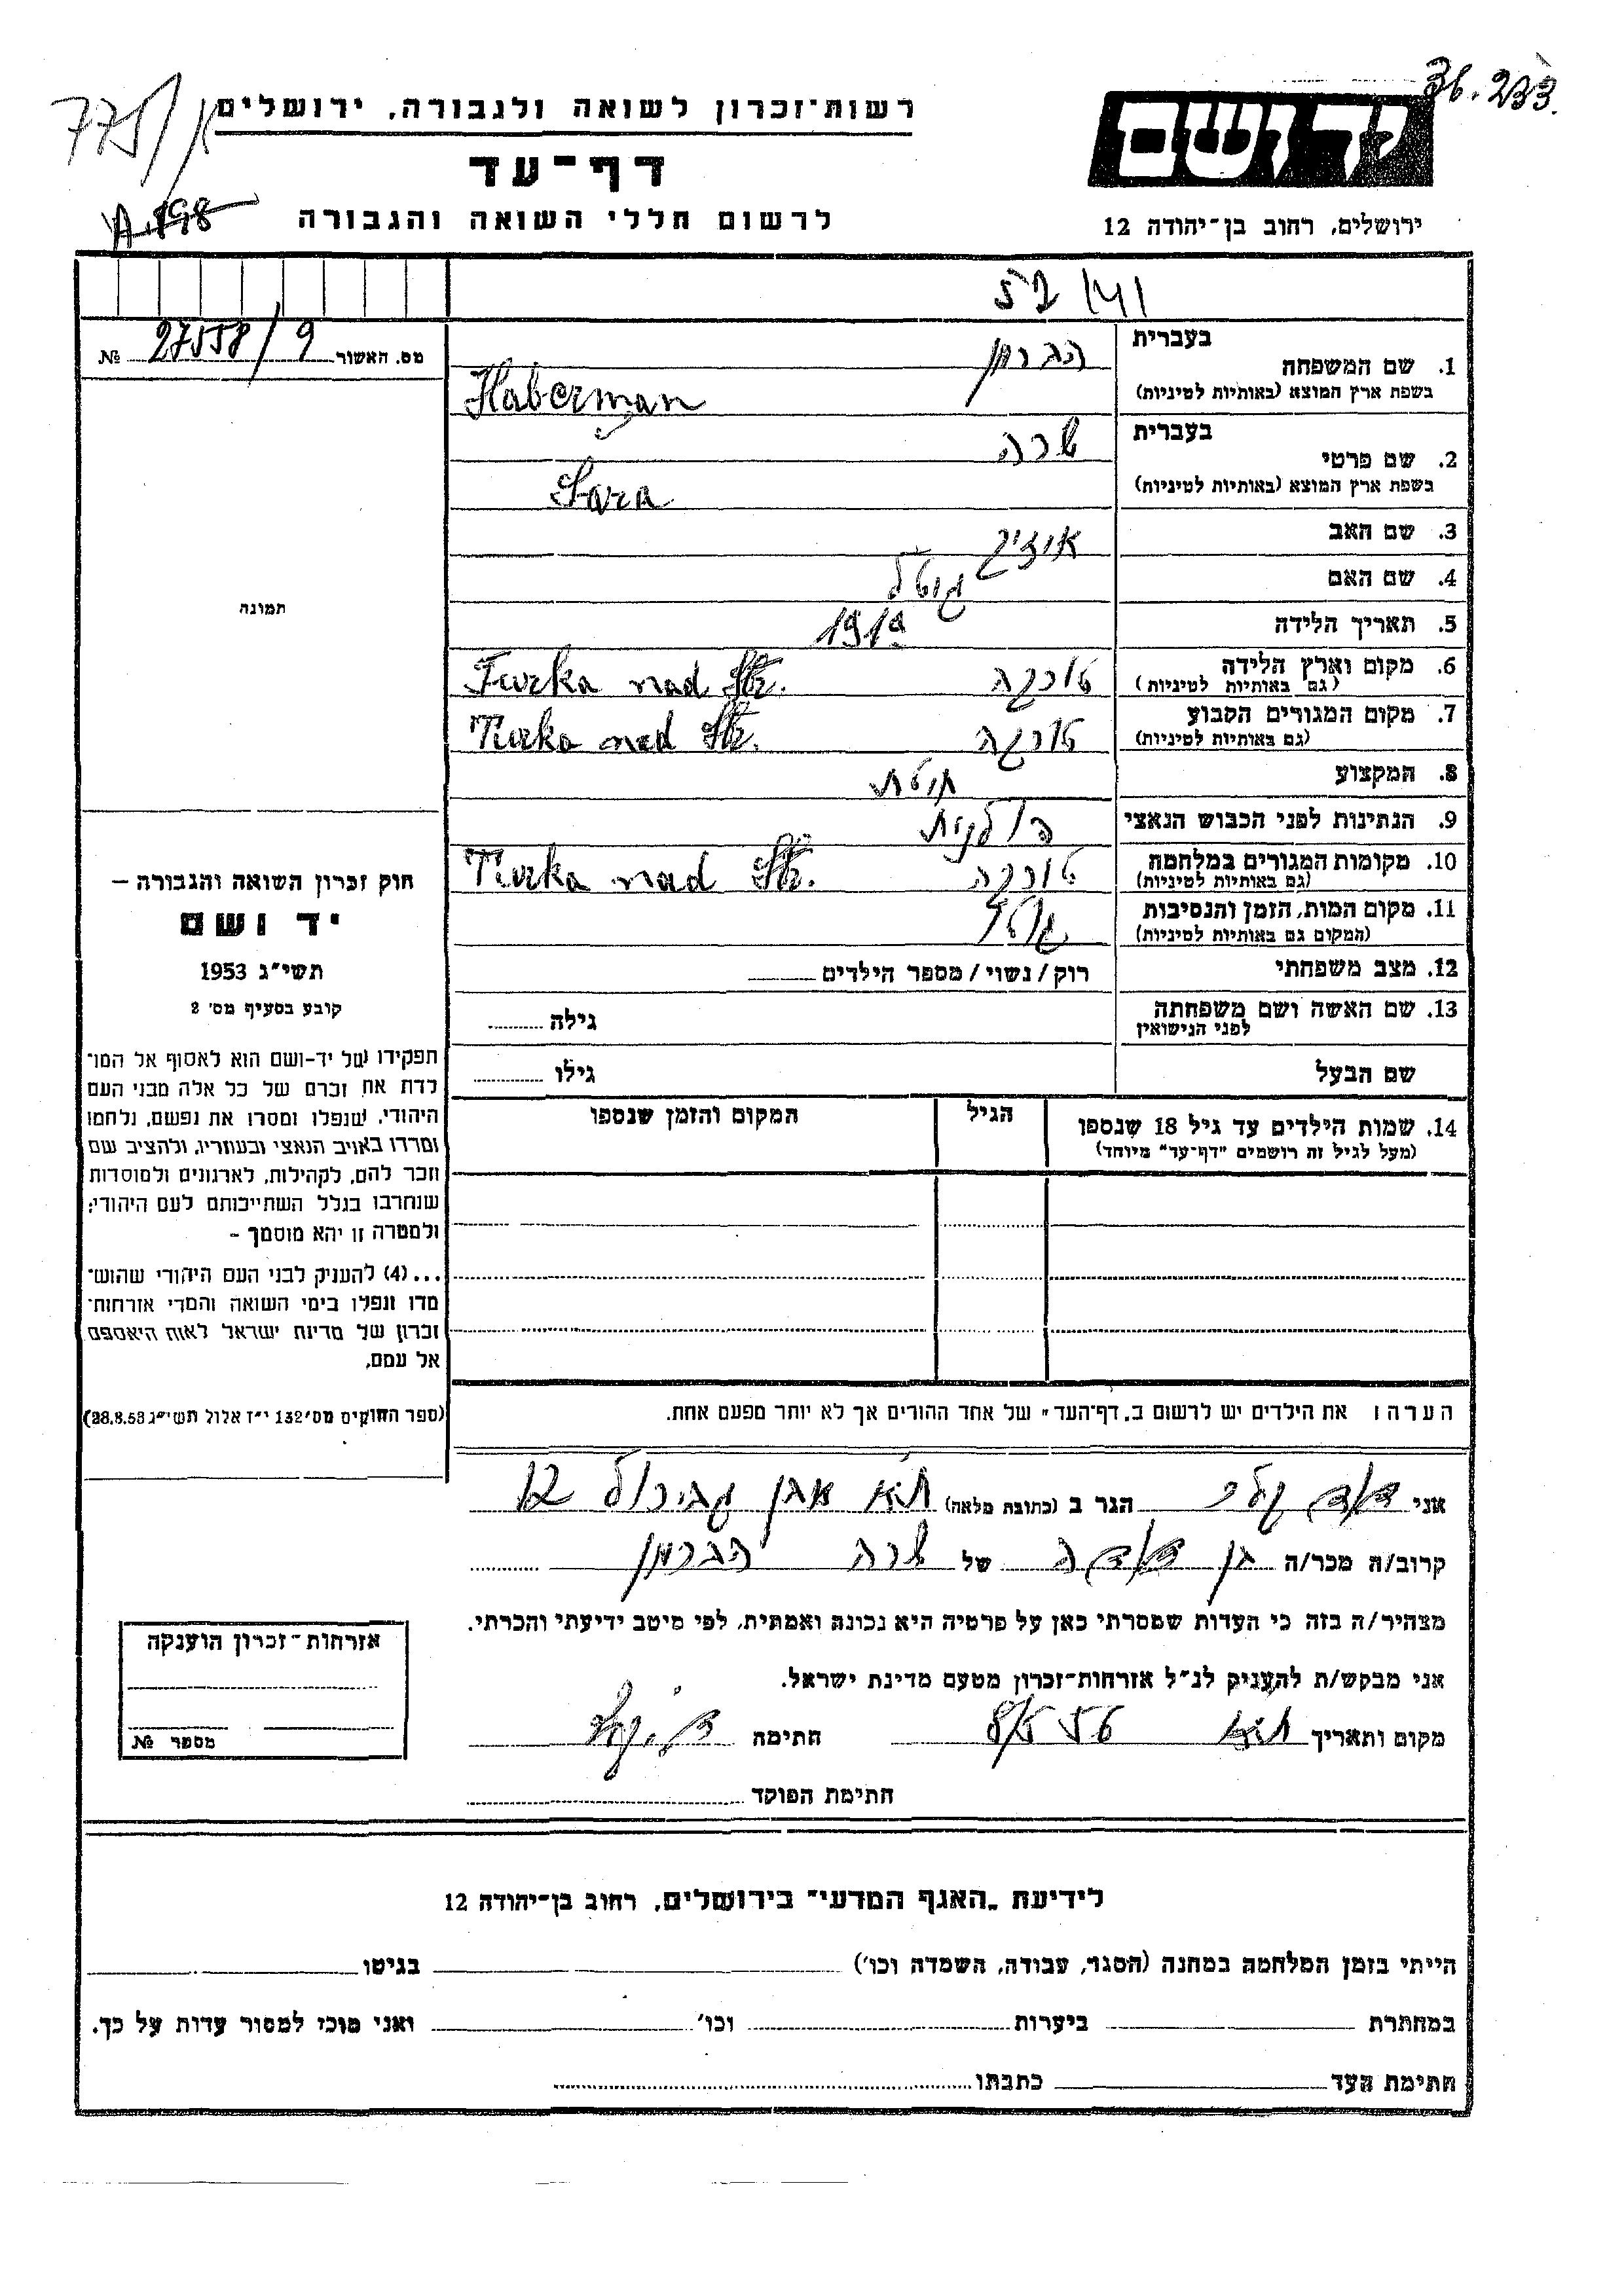 36.233
רשות־זכרון לשואה ולגבורה, ירושלים
775/א
יד ושם
דף־עד
A.198
לרשום חללי השואה והגבורה
ירושלים, רחוב בן־יהודה 12
מס. האשור 27558/9 №
בעברית הברמן
1. שם המשפחה
בשפת ארץ המוצא (באותיות לטיניות) Haberman
בעברית שרה
2. שם פרטי
בשפת ארץ המוצא (באותיות לטיניות) Sara
3. שם האב אייזיק
4. שם האם גיטל
5. תאריך הלידה 1919
6. מקום וארץ הלידה טורקה Turka nad Str.
(גם באותיות לטיניות)
7. מקום המגורים הקבוע טורקה Turka nad Str.
(גם באותיות לטיניות)
8. המקצוע
9. הנתינות לפני הכבוש הנאצי פולנית
10. מקומות המגורים במלחמה טורקה Turka nad Str.
(גם באותיות לטיניות)
11. מקום המות, הזמן והנסיבות
(המקום גם באותיות לטיניות)
12. מצב משפחתי רוק/נשוי/מספר הילדים
13. שם האשה ושם משפחתה
לפני הנישואין
גילה
שם הבעל גילו
14. שמות הילדים עד גיל 18 שנספו הגיל המקום והזמן שנספו
(מעל לגיל זה רושמים "דף־עד" מיוחד)
תמונה
חוק זכרון השואה והגבורה –
יד ושם
תשי"ג 1953
קובע בסעיף מס' 2
תפקידו של יד-ושם הוא לאסוף אל המו־
לדת את זכרם של כל אלה מבני העם
היהודי, שנפלו ומסרו את נפשם, נלחמו
ומרדו באויב הנאצי ובעוזריו, ולהציב שם
וזכר להם, לקהילות, לארגונים ולמוסדות
שנחרבו בגלל השתייכותם לעם היהודי;
ולמטרה זו יהא מוסמך –
...(4) להעניק לבני העם היהודי שהוש־
מדו ונפלו בימי השואה והמרי אזרחות־
זכרון של מדינת ישראל לאות היאספם
אל עמם.
(ספר החוקים מס' 132 י"ז אלול תשי"ג 28.8.53)
הערה: את הילדים יש לרשום ב„דף־העד" של אחד ההורים אך לא יותר מפעם אחת.
אני דוד הגר ב (כתובת מלאה) ת"א אבן גבירול 12
קרוב/ה מכר/ה בן דודה של שרה הברמן
מצהיר/ה בזה כי העדות שמסרתי כאן על פרטיה היא נכונה ואמתית, לפי מיטב ידיעתי והכרתי.
אני מבקש/ת להעניק לנ"ל אזרחות־זכרון מטעם מדינת ישראל.
מקום ותאריך ת"א חתימה
חתימת הפוקד
אזרחות־זכרון הוענקה
מספר №
לידיעת „האגף המדעי" בירושלים, רחוב בן־יהודה 12
הייתי בזמן המלחמה במחנה (הסגר, עבודה, השמדה וכו') בגיטו
במחתרת ביערות וכו' ואני מוכן למסור עדות על כך.
חתימת העד כתבתו